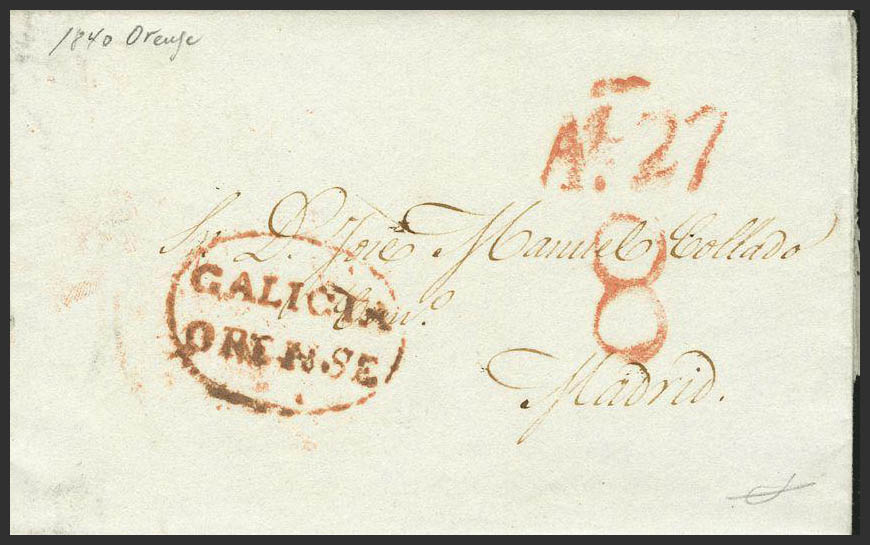 1840 Orense
A.E 27
Sr. D. José Manuel Collado
8
GALICIA
ORENSE
Madrid.